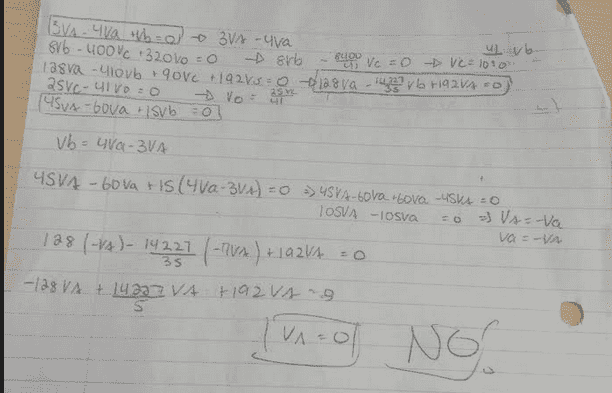 3VA - 4Va + Vb = 0 → 3VA - 4Va
8Vb - 400Vc + 320Vo = 0 → 8Vb - 8400/41 Vc = 0 → Vc = 41 Vb
128Va - 410Vb + 90Vc + 192Vs = 0 → 128Va - 14227/35 Vb + 192VA = 0
25Vc - 41Vo = 0 → Vo = 25Vc/41
45VA - 60Va + 15Vb = 0
Vb = 4Va - 3VA
45VA - 60Va + 15(4Va - 3VA) = 0 ⇒ 45VA - 60Va + 60Va - 45VA = 0
105VA - 105Va = 0 ⇒ VA = -Va
Va = -VA
128(-VA) - 14227/35 (-7VA) + 192VA = 0
-128VA + 14227/5 VA + 192VA = 0
VA = 0 NO!